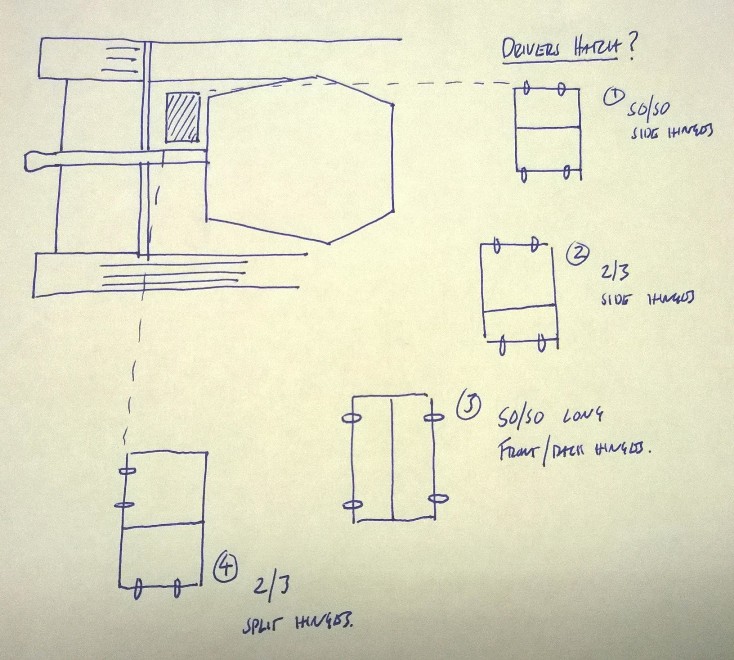 DRIVERS HATCH?
1
50/50
SIDE HINGES
2
2/3
SIDE HINGES
3
50/50 LONG
FRONT/BACK HINGES.
4
2/3
SPLIT HINGES.